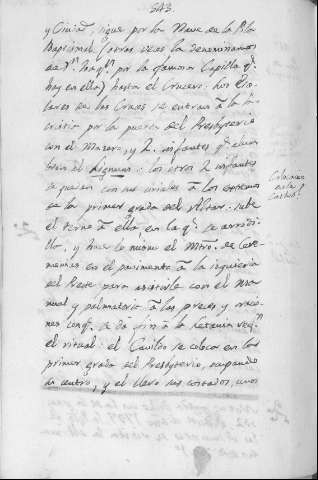 543
y Ciudad, sigue por la Nave de la Pila
Baptismal (otras veces la denominamos
de Sn. por la famosa Capilla q.
hay en ella) hasta el Crucero: los
de las Cruces se entran à la Sa-
cristia por la puerta del Presbyterio
con el Macero, y 2. infantes q.
el Lignum: los otros 2 infantes
se quedan con sus ciriales à los extremos
en la primer grada del Altar: sube
el Terno à ella, en la q. se arrodi-
lla, y hace lo mismo el Mtro. de Cere-
monias en el pavimento à la izquierda
del Preste para asistirle con el Ma-
nual y palmatoria à las preces y oracio-
nes conq. se dà fin à la Letania seg.n
el ritual: el Cavildo se coloca en la
primer grada del Presbyterio, ocupando
su centro, y el Clero sus costados, unos
Colocacion
en la